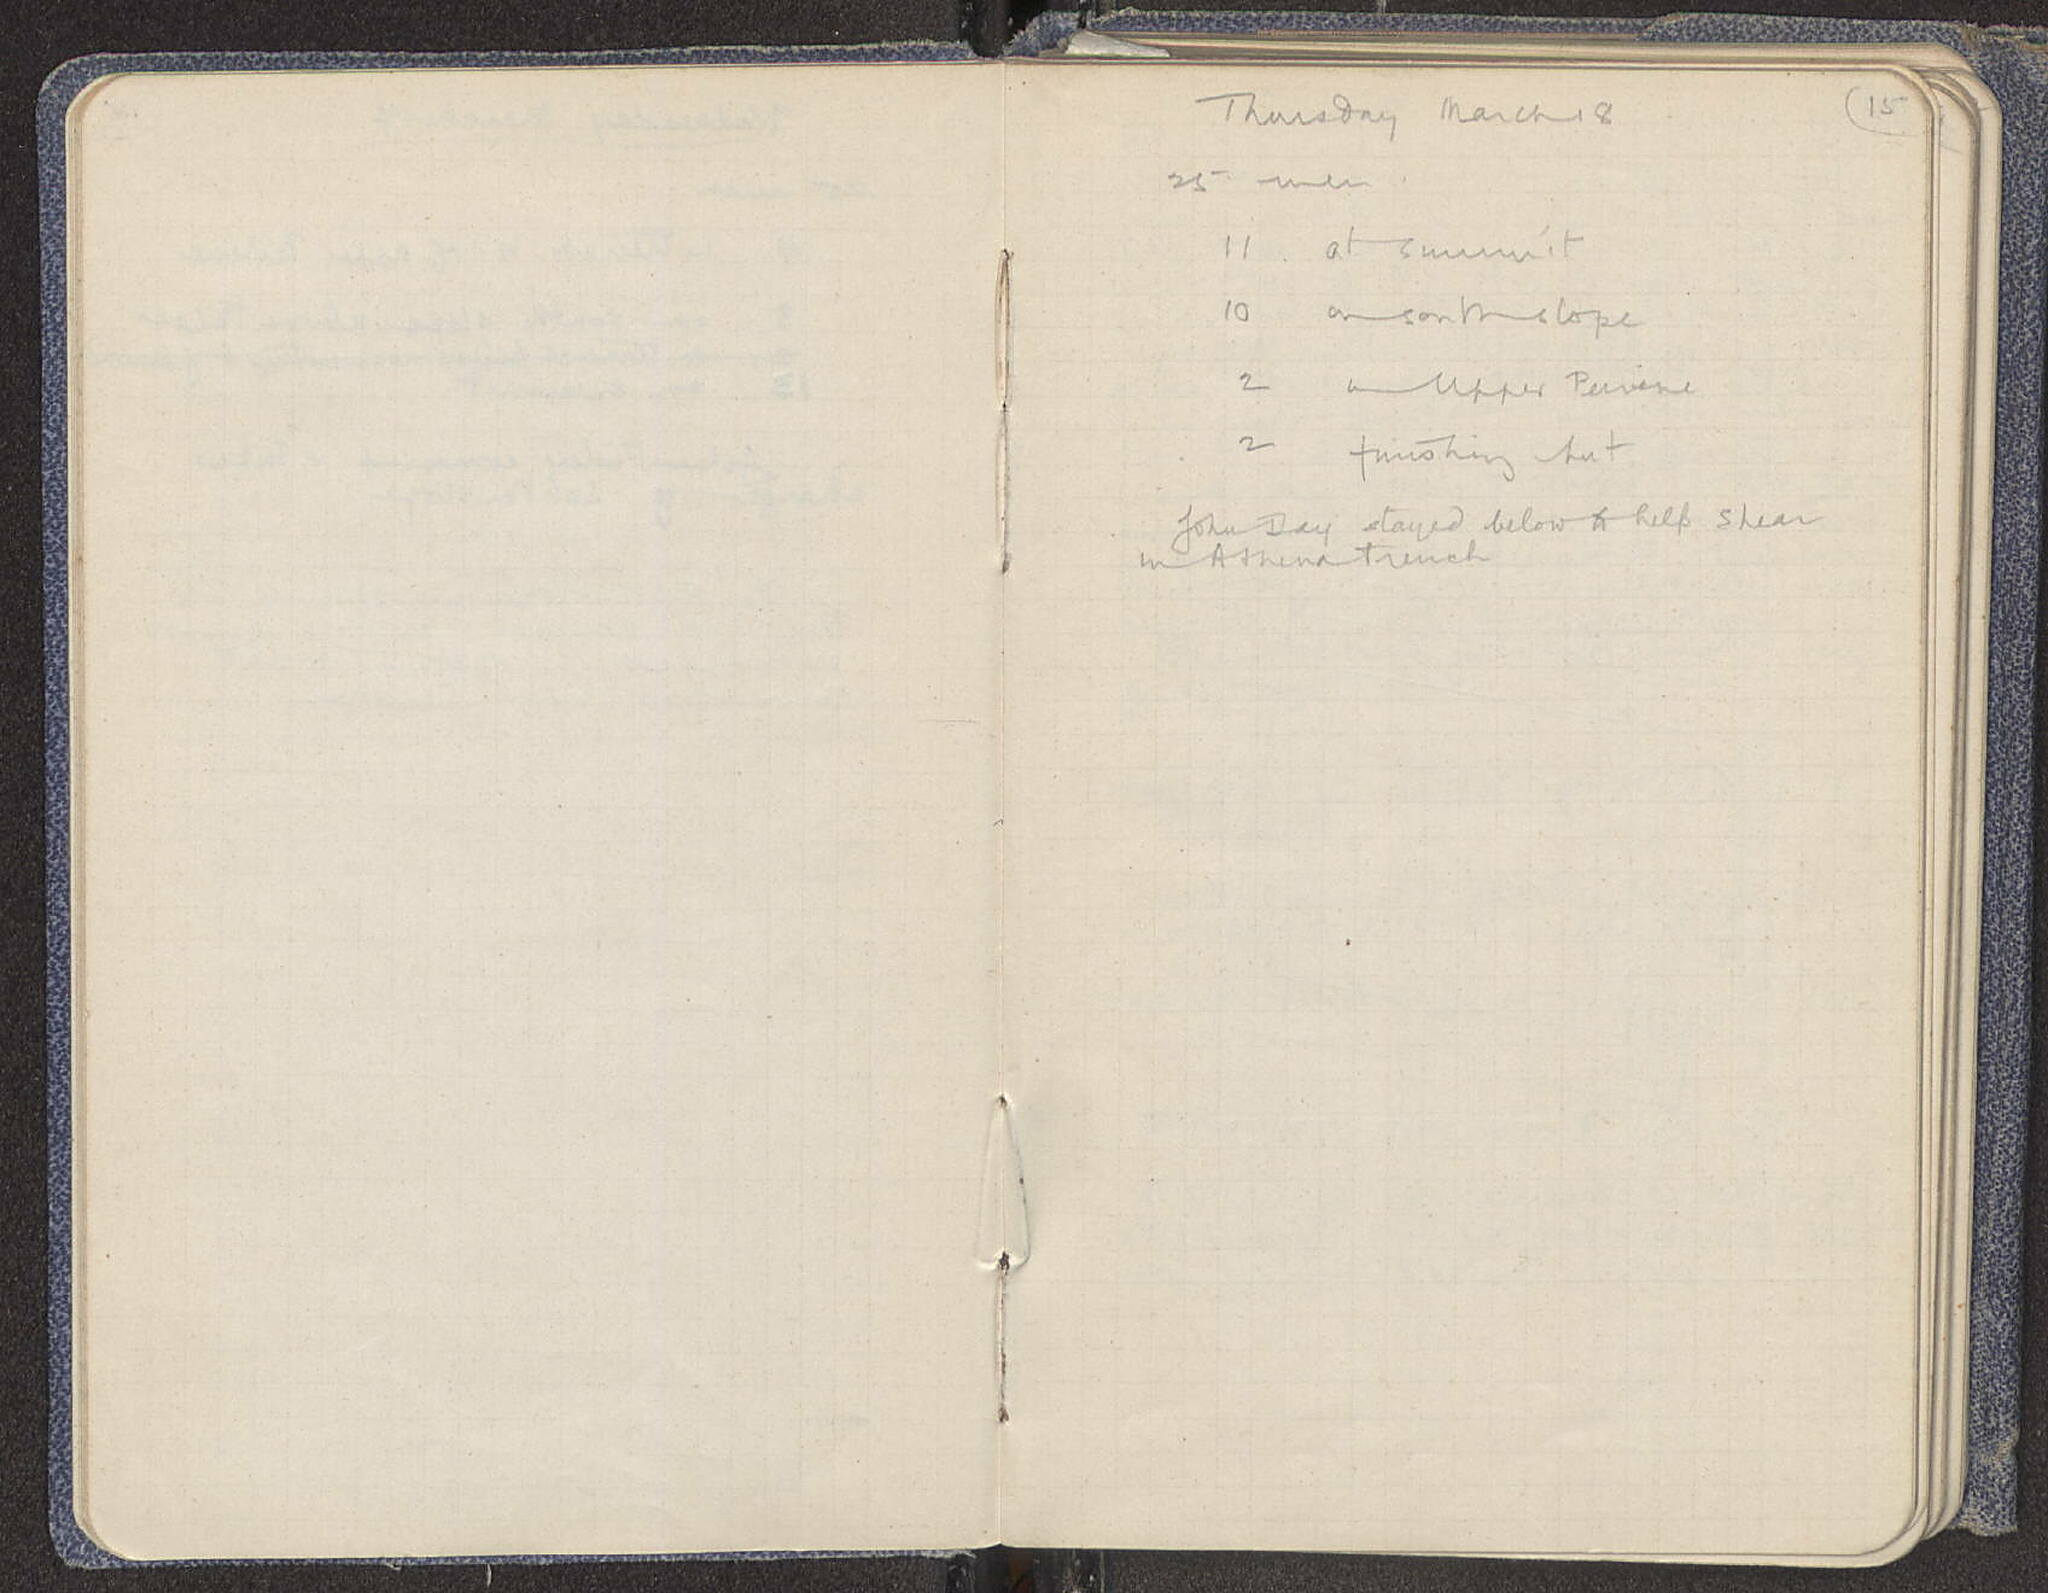 Thursday March 18
15
25 men
11 at summit
10 on south slope
2 in Upper
2 finishing hut
John Day stayed below to help Shear
in Athena trench